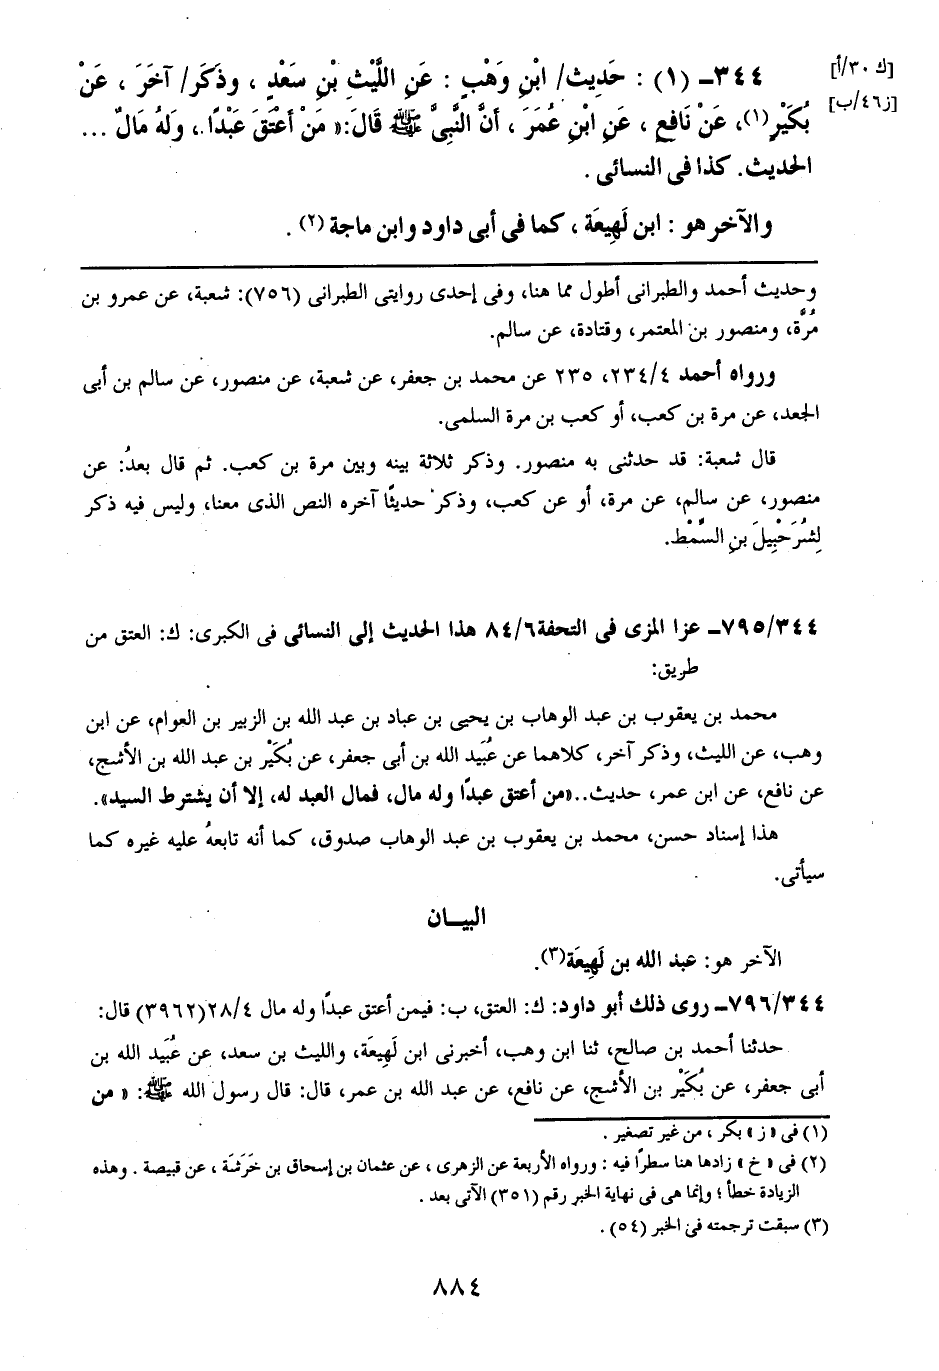 [ك ٣٠/أ]
[ز٤٦/ب]
٣٤٤ـ (١) : حَدِيث/ ابْنِ وَهْبٍ : عَنِ اللَّيْثِ بْنِ سَعْدٍ ، وذَكَرَ/ آخَرَ ، عَنْ
بُكَيْرٍ(١)، عَنْ نَافِعٍ ، عَنِ ابْنِ عُمَرَ ، أَنَّ النَّبِىَّ ﷺ قَالَ:« مَنْ أَعْتَقَ عَبْدًا ، وَلَهُ مَالٌ ...
الحديث. كذا فى النسائى .
والآخر هو : ابن لَهِيعَة ، كما فى أبى داود وابن ماجة (٢) .
وحديث أحمد والطبرانى أطول مما هنا، وفى إحدى روايتى الطبرانى (٧٥٦): شعبة، عن عمرو بن
مُرَّة، ومنصور بن المعتمر، وقتادة، عن سالم.
ورواه أحمد ٢٣٤/٤، ٢٣٥ عن محمد بن جعفر، عن شعبة، عن منصور، عن سالم بن أبى
الجعد، عن مرة بن كعب، أو كعب بن مرة السلمى.
قال شعبة: قد حدثنى به منصور. وذكر ثلاثة بينه وبين مرة بن كعب. ثم قال بعدُ: عن
منصور، عن سالم، عن مرة، أو عن كعب، وذكر حديثًا آخره النص الذى معنا، وليس فيه ذكر
لِشُرَحْبِيلَ بنِ السِّمْط.
٧٩٥/٣٤٤ـ عزا المزى فى التحفة٨٤/٦ هذا الحديث إلى النسائى فى الكبرى: ك: العتق من
طريق:
محمد بن يعقوب بن عبد الوهاب بن يحيى بن عباد بن عبد الله بن الزبير بن العوام، عن ابن
وهب، عن الليث، وذكر آخر، كلاهما عن عُبَيد الله بن أبى جعفر، عن بُكَيْر بن عبد الله بن الأشج،
عن نافع، عن ابن عمر، حديث..«من أعتق عبدًا وله مال، فمال العبد له، إلا أن يشترط السيد».
هذا إسناد حسن، محمد بن يعقوب بن عبد الوهاب صدوق، كما أنه تابعهُ عليه غيره كما
سيأتى.
البيـــان
الآخر هو: عبد الله بن لَهِيعَة(٣).
٧٩٦/٣٤٤ـ روى ذلك أبو داود: ك: العتق، ب: فيمن أعتق عبدًا وله مال ٢٨/٤(٣٩٦٢) قال:
حدثنا أحمد بن صالح، ثنا ابن وهب، أخبرنى ابن لَهِيعَة، والليث بن سعد، عن عُبَيد الله بن
أبى جعفر، عن بُكَيْر بن الأشج، عن نافع، عن عبد الله بن عمر، قال: قال رسول الله ﷺ: « من
(١) فى « ز » بكر ، من غير تصغير .
(٢) فى « خ » زادها هنا سطرًا فيه : ورواه الأربعة عن الزهرى ، عن عثمان بن إسحاق بن خَرَشَة ، عن قبيصة . وهذه
الزيادة خطأ ؛ وإنما هى فى نهاية الخبر رقم (٣٥١) الآتى بعد .
(٣) سبقت ترجمته فى الخبر (٥٤) .
٨٨٤